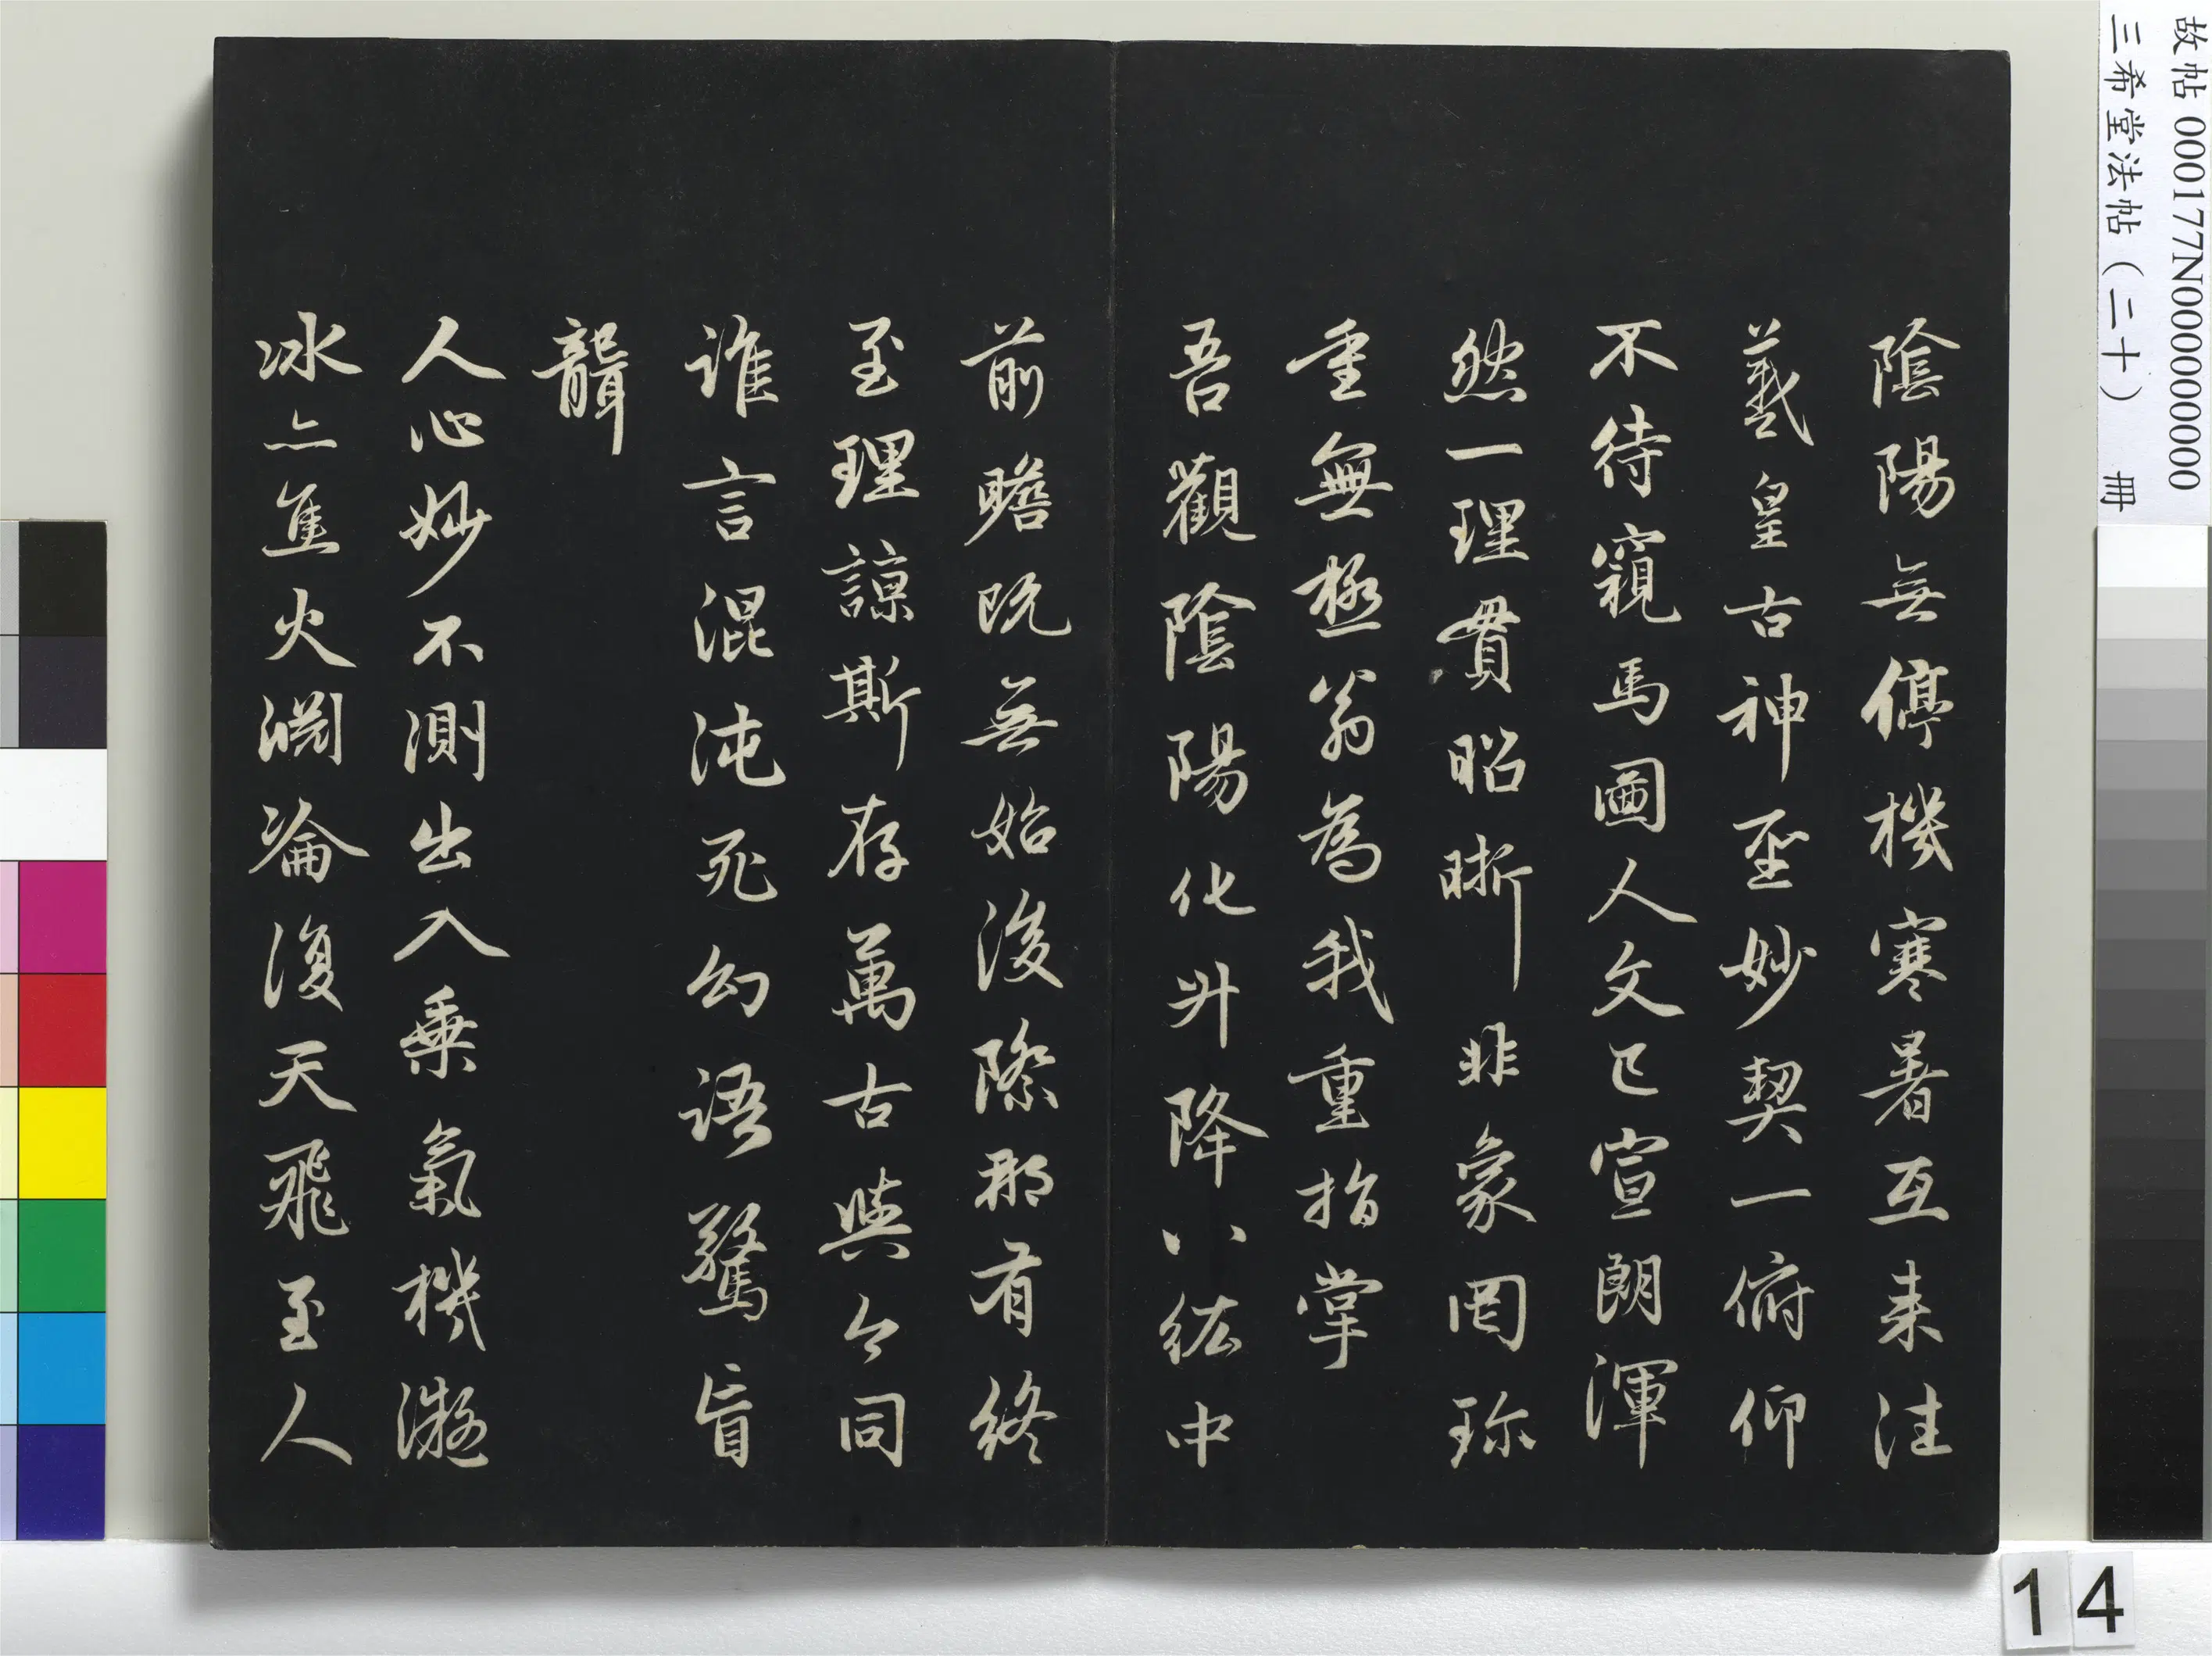 陰陽無停機寒暑互来往
羲皇古神聖妙契一俯仰
不待窺馬圖人文已宣朗渾
然一理貫昭晣非象罔珎
重無極翁為我重指掌
吾觀陰陽化升降八紘中
前瞻既無始後際那有終
至理諒斯存萬古與今同
誰言混沌死幻語驚盲
聾
人心妙不測出入乗氣機凝
冰亦焦火淵淪復天飛至人
故帖 000177N000000000
三希堂法帖（二十） 冊
14